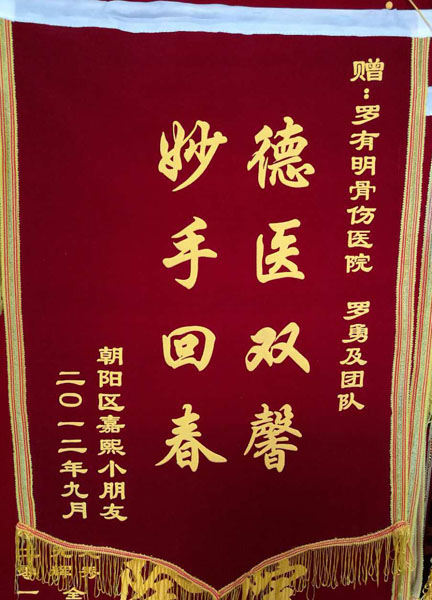 赠：罗有明骨伤医院 罗勇及团队
德医双馨
妙手回春
朝阳区嘉熙小朋友
二〇一二年九月